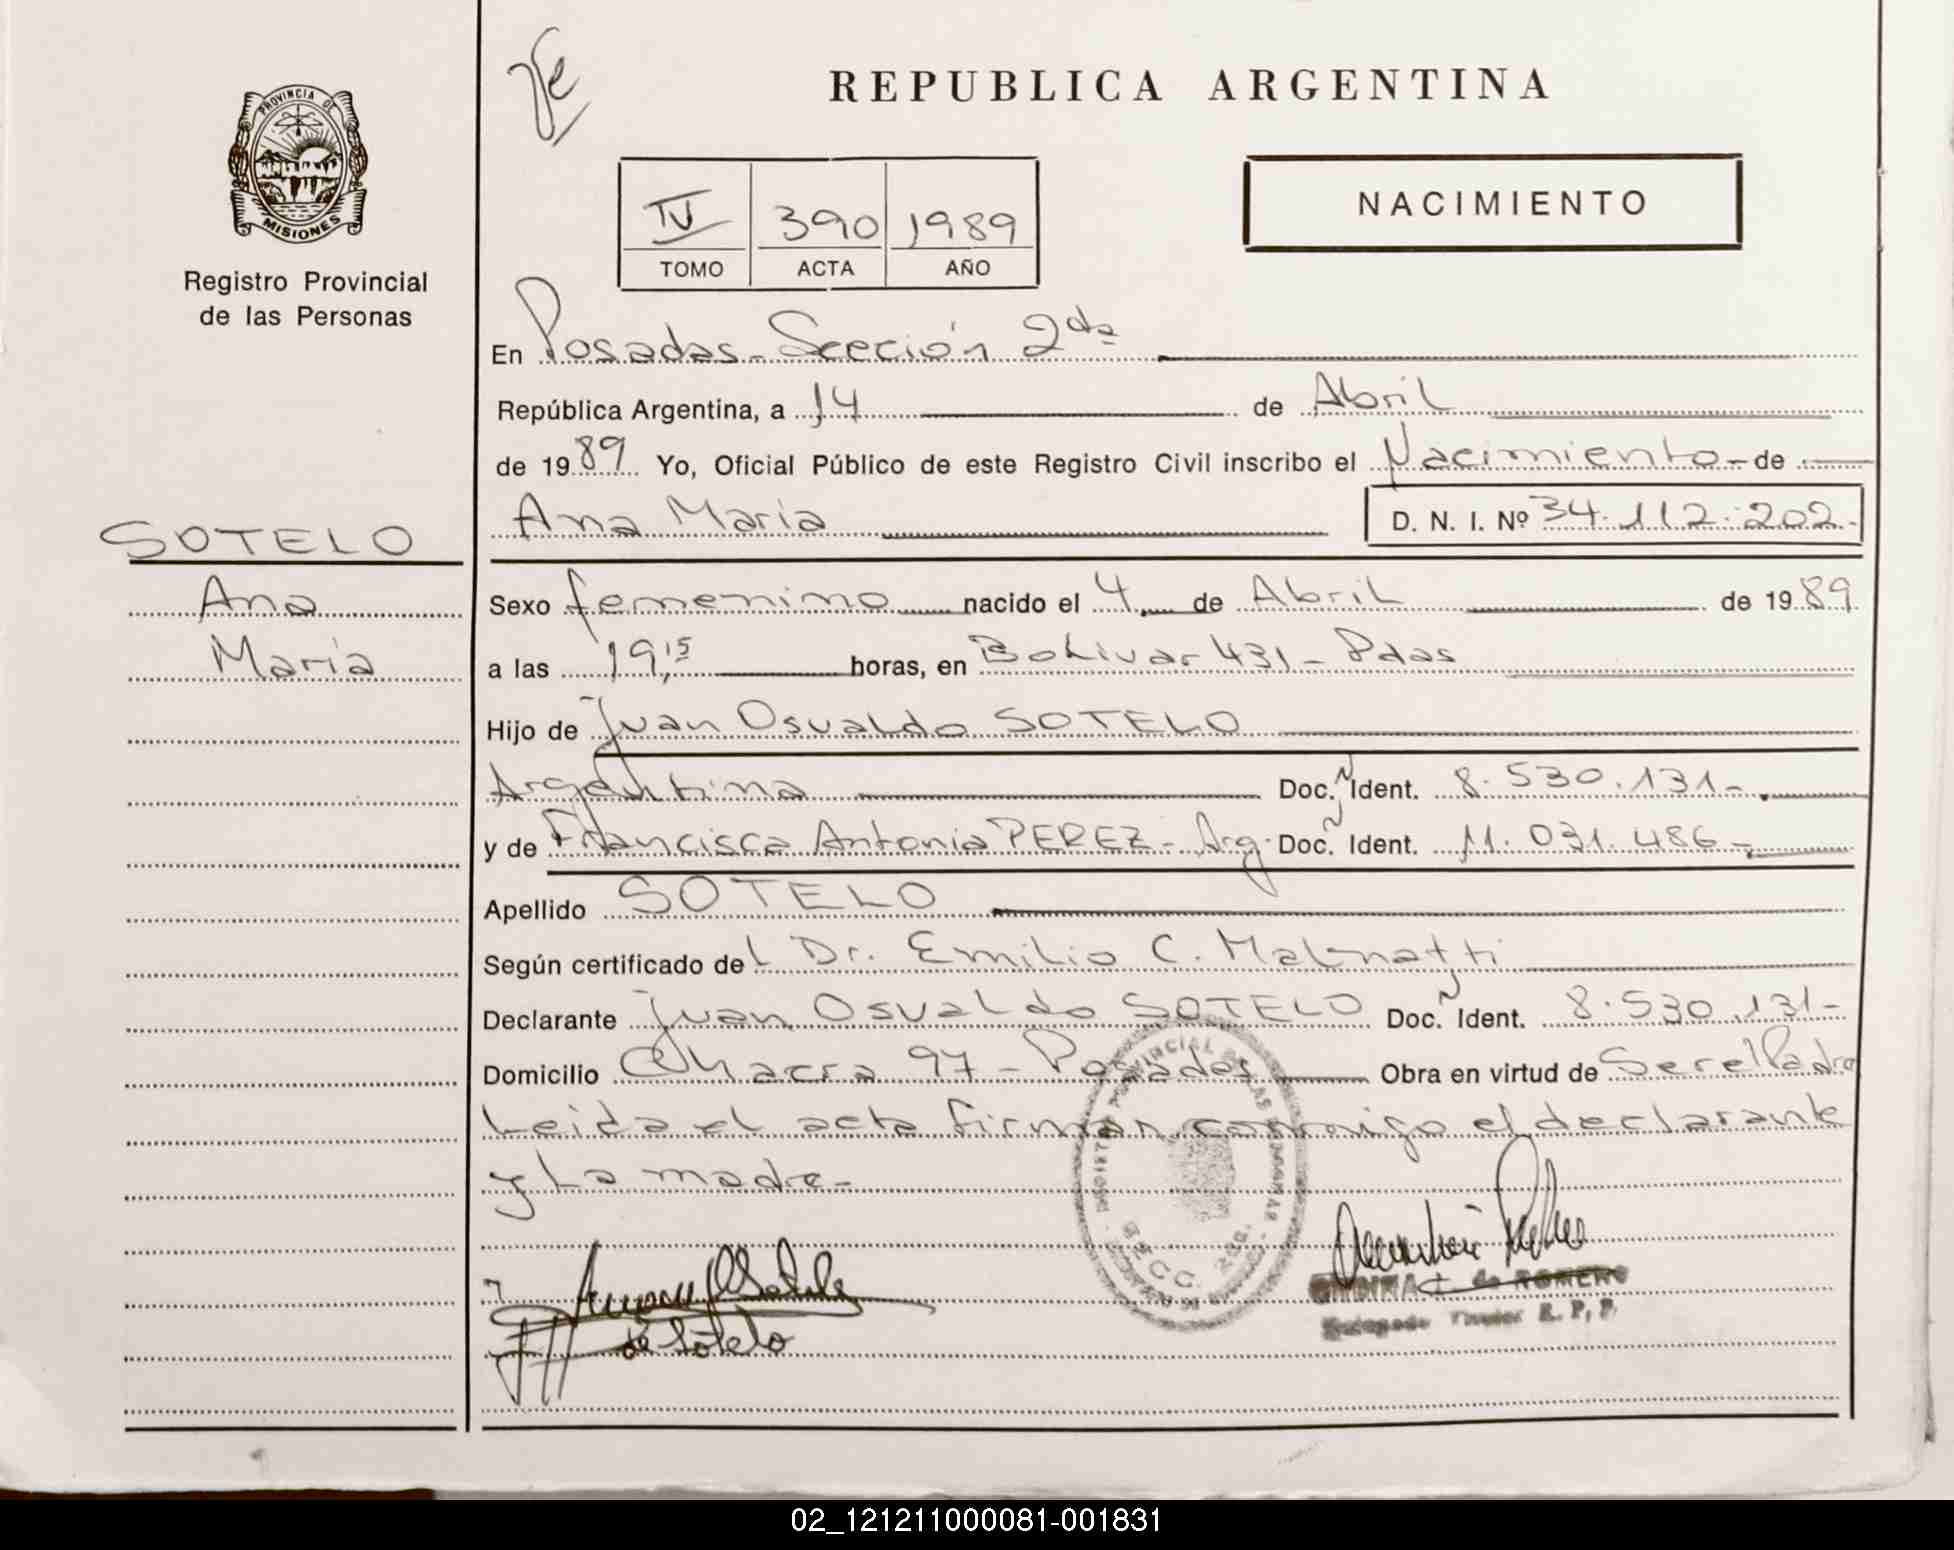 PROVINCIA DE
MISIONES
Registro Provincial
de las Personas
REPUBLICA ARGENTINA
NACIMIENTO
IV 390 1989
TOMO ACTA AÑO
En Posadas - Sección 2da
República Argentina, a 14 de Abril
de 1989 Yo, Oficial Público de este Registro Civil inscribo el Nacimiento - de
Ana María D. N. I. Nº 34.112.202.-
SOTELO
Ana
María
Sexo femenino nacido el 4 de Abril de 1989
a las 19,15 horas, en Bolivar 431 - Pdas
Hijo de Juan Osvaldo SOTELO
Argentina Doc. Ident. 8.530.131-
y de Francisca Antonia PEREZ - Arg. Doc. Ident. 11.031.486-
Apellido SOTELO
Según certificado del Dr. Emilio C. Malnatti
Declarante Juan Osvaldo SOTELO Doc. Ident. 8.530.131-
Domicilio Chacra 97 - Posadas Obra en virtud de Ser el Padre
Leida el acta firman conmigo el declarante
y La madre -
de Sotelo
de ROMERO
Titular R. P. P.
02_121211000081-001831